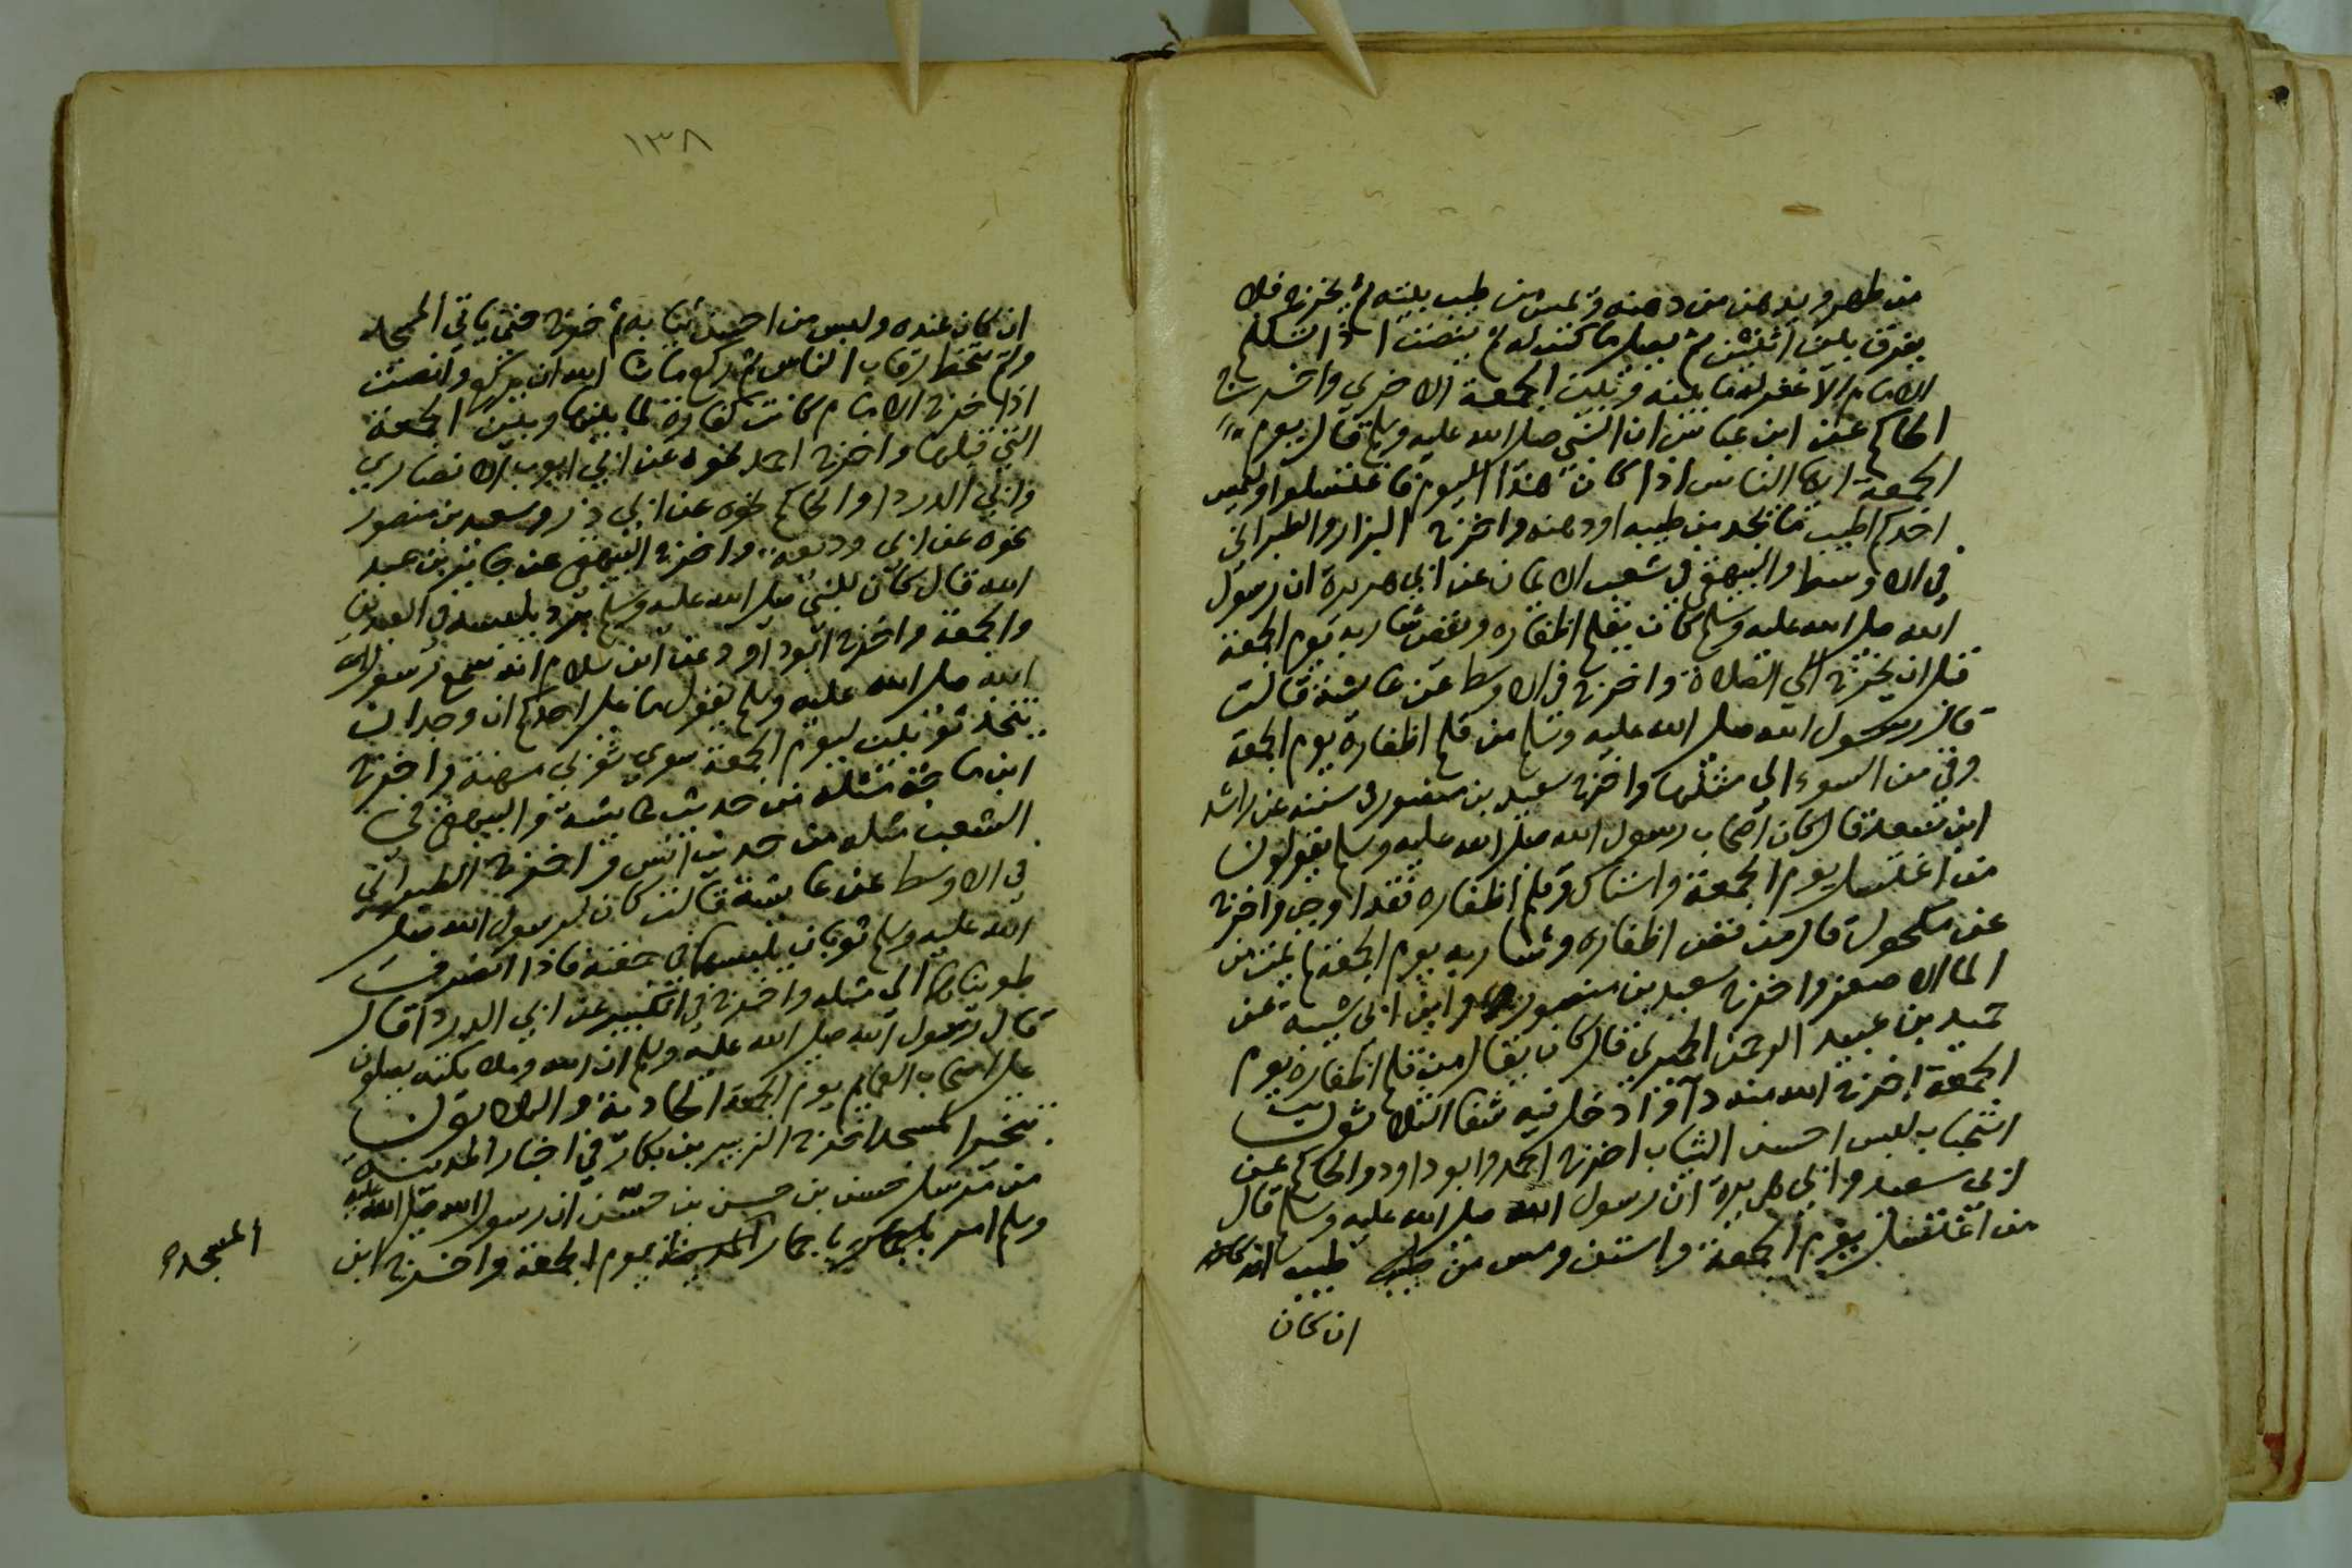 من طهر ويدهن من دهنه ويمس من طيب بيته ثم يخرج فلا
يفرق بين اثنين ثم يصلي ما كتب له ثم ينصت اذا تكلم
الامام الا غفر له ما بينه وبين الجمعة الاخرى واخرج
الحاكم عن ابن عباس ان النبي صلى الله عليه وسلم قال يوم
الجمعة ايها الناس اذا كان هذا اليوم فاغتسلوا وليمس
احدكم اطيب ما يجد من طيبه او دهنه واخرج البزار والطبراني
في الاوسط والبيهقي في شعب الايمان عن ابي هريرة ان رسول
الله صلى الله عليه وسلم كان يقلم اظفاره ويقص شاربه يوم الجمعة
قبل ان يخرج الى الصلاة واخرج في الاوسط عن عايشة قالت
قال رسول الله صلى الله عليه وسلم من قلم اظفاره يوم الجمعة
وقي من السوء الى مثلها واخرج سعيد بن منصور في سننه عن راشد
ابن سعد قال كان اصحاب رسول الله صلى الله عليه وسلم يقولون
من اغتسل يوم الجمعة واستاك وقلم اظفاره فقد اوجب واخرج
عن مكحول قال من قص اظفاره وشاربه يوم الجمعة لم يمت من
الماء الاصفر واخرج سعيد بن منصور وابن ابي شيبة عن
حميد بن عبد الرحمن الحميري قال كان يقال من قلم اظفاره يوم
الجمعة اخرج الله منه داء وادخل فيه شفا الثلاثون
استحباب لبس احسن الثياب اخرج احمد وابو داود والحاكم عن
ابي سعيد وابي هريرة ان رسول الله صلى الله عليه وسلم قال
من اغتسل يوم الجمعة واستن ومس من طيب ان كان
ان كان
١٣٨
ان كان عنده ولبس من احسن ثيابه ثم خرج حتى ياتي المسجد
ولم يتخط رقاب الناس ثم ركع ما شا الله ان يركع وانصت
اذا خرج الامام كانت كفارة لما بينها وبين الجمعة
التي قبلها واخرج احمد نحوه عن ابي ايوب الانصاري
وابي الدردا والحاكم نحوه عن ابي ذر وسعيد بن منصور
نحوه عن ابي وديعة واخرج البيهقي عن جابر بن عبد
الله قال كان للنبي صلى الله عليه وسلم برد يلبسه في العيدين
والجمعة واخرج ابو داود عن ابن سلام انه سمع رسول
الله صلى الله عليه وسلم يقول ما على احدكم ان وجد ان
يتخذ ثوبين ليوم الجمعة سوى ثوبي مهنة واخرج
ابن ماجة مثله من حديث عايشة والبيهقي في
الشعب مثله من حديث انس واخرج الطبراني
في الاوسط عن عايشة قالت كان لرسول الله صلى
الله عليه وسلم ثوبان يلبسهما في جمعته فاذا انصرف
طويناهما الى مثله واخرج في الكبير عن ابي الدردا قال
قال رسول الله صلى الله عليه وسلم ان الله وملائكته يصلون
على اصحاب العمايم يوم الجمعة الحادية والثلاثون
تبخير المسجد اخرج الزبير بن بكار في اخبار المدينة
من مرسل حسن بن حسن بن حسن ان رسول الله صلى الله عليه
وسلم امر باجمار المسجد يوم الجمعة واخرج ابن
المسجد